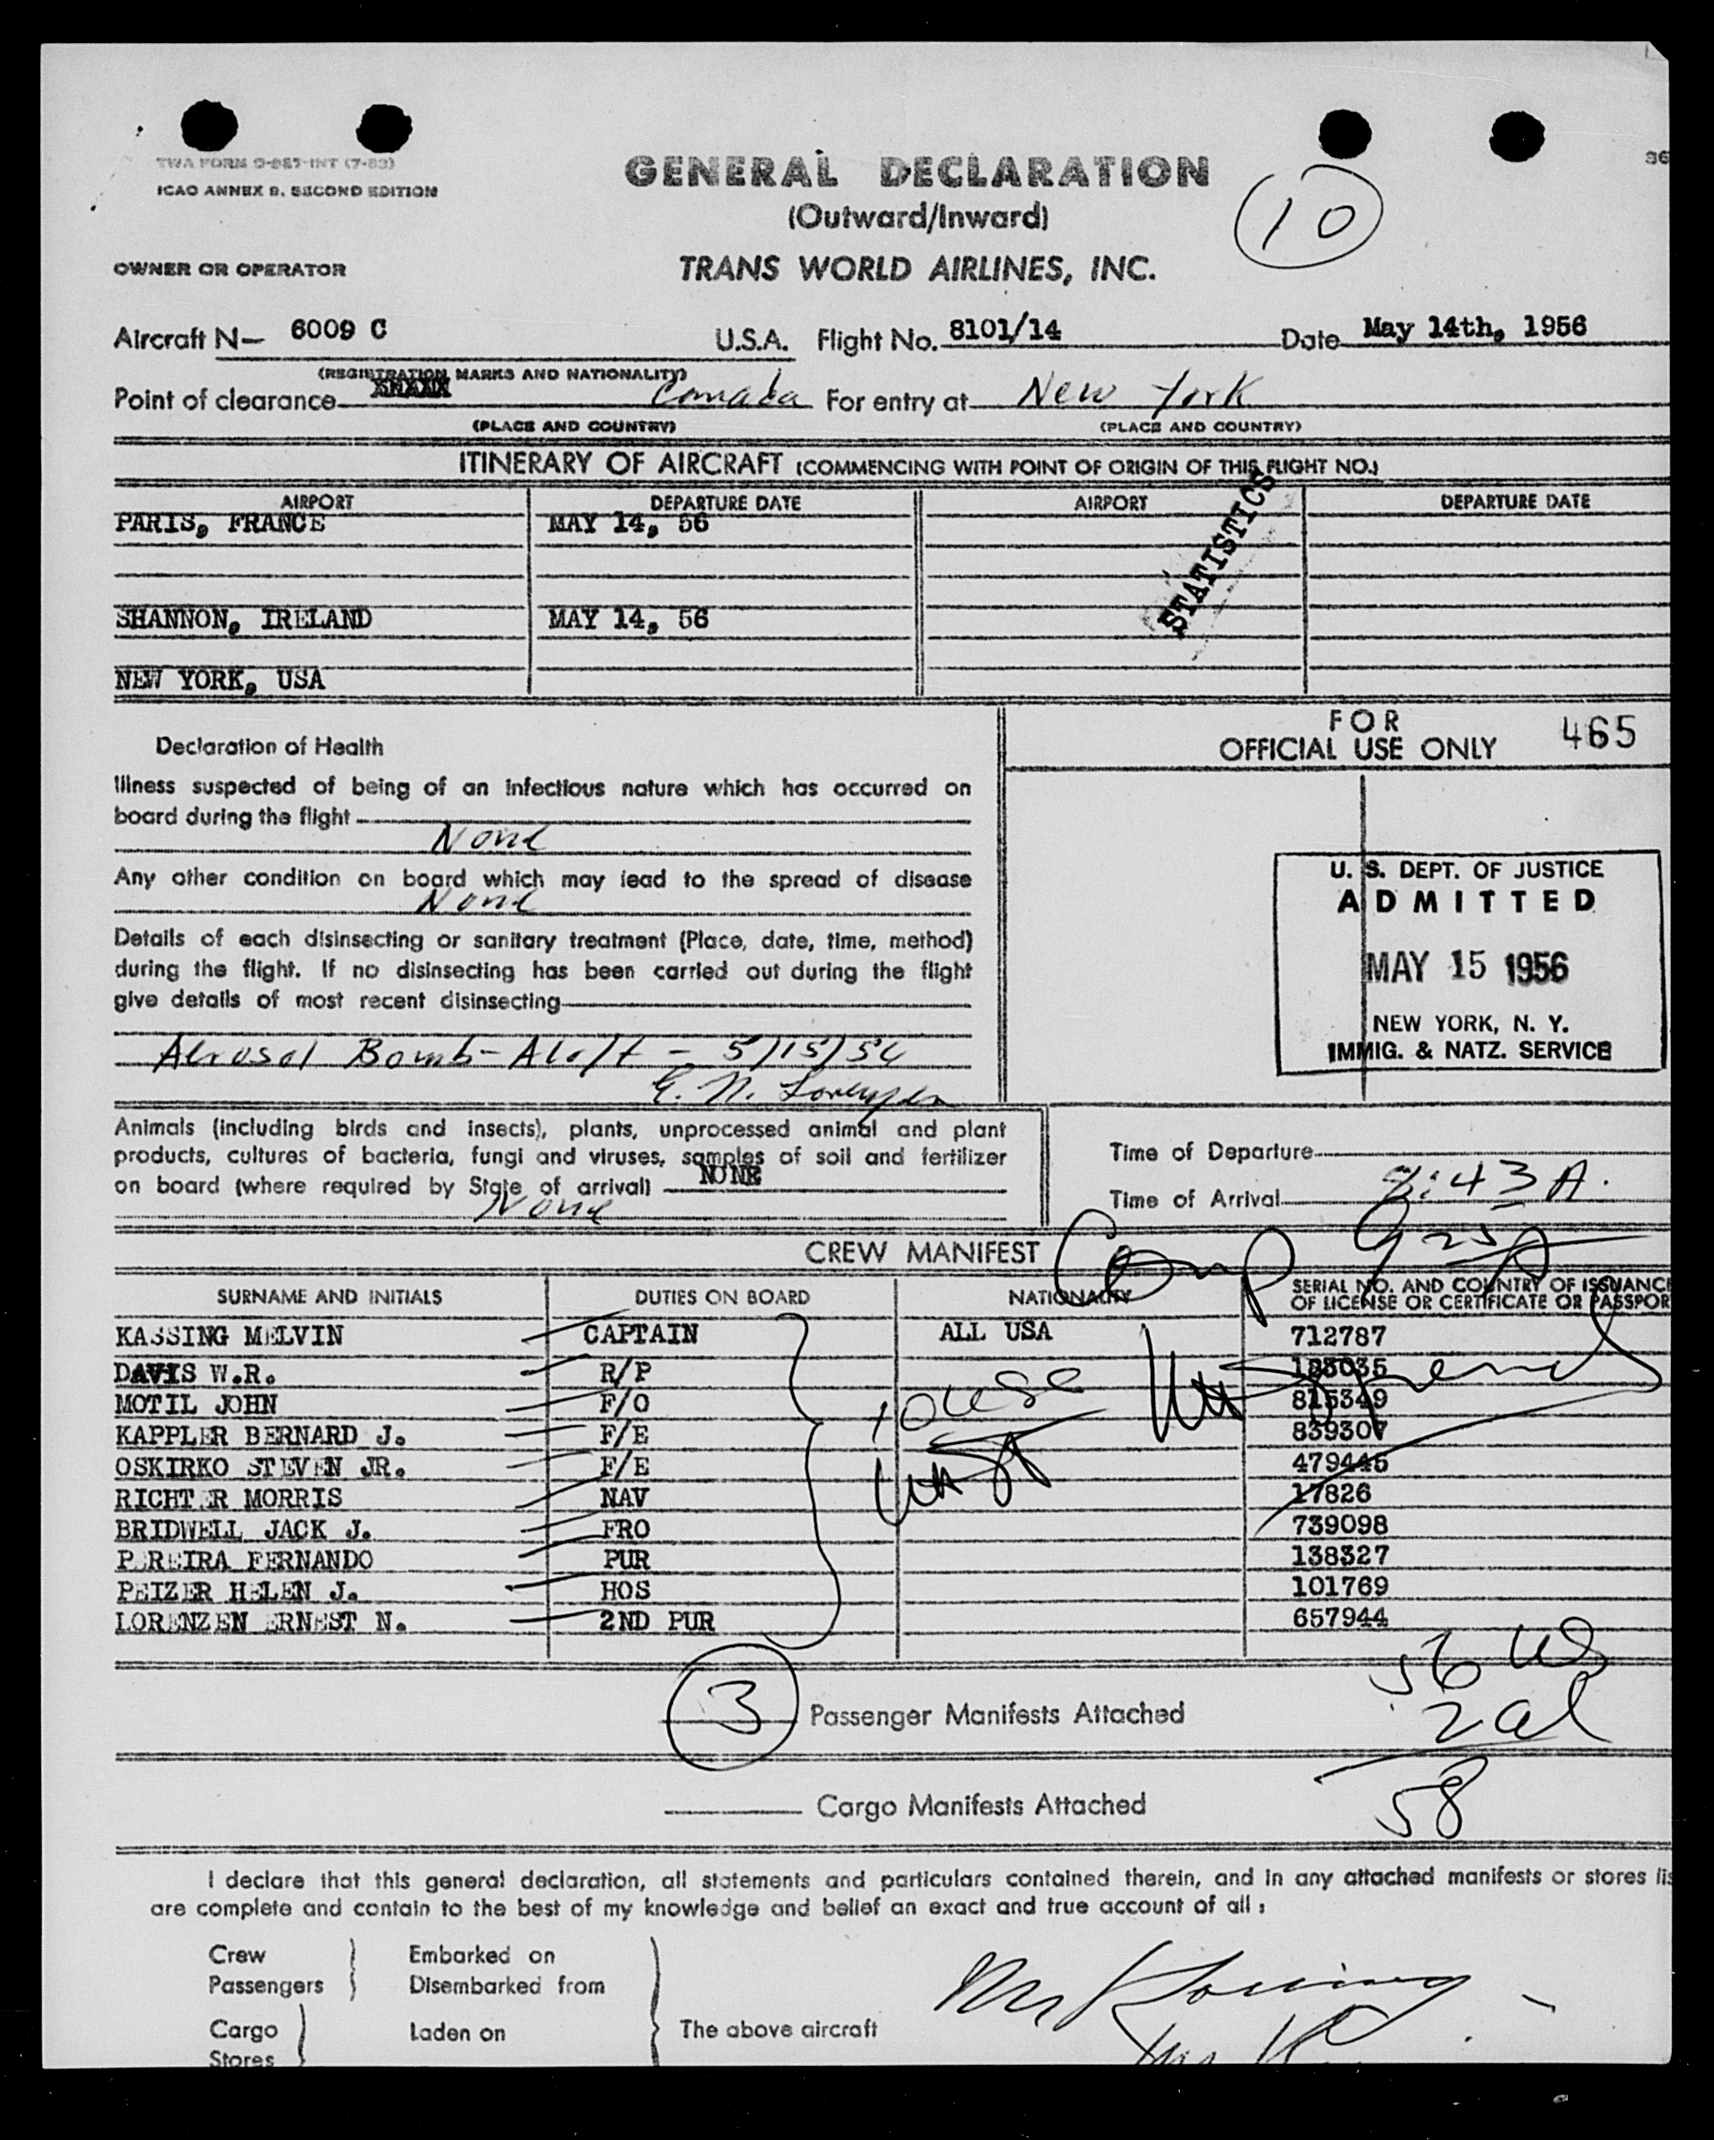 TWA FORM O-987-INT (7-53)
ICAO ANNEX 9, SECOND EDITION
36
GENERAL DECLARATION
(Outward/Inward)
10
OWNER OR OPERATOR
TRANS WORLD AIRLINES, INC.
Aircraft N— 6009 C U.S.A. Flight No. 8101/14 Date May 14th, 1956
(REGISTRATION MARKS AND NATIONALITY)
Point of clearance Canada For entry at New York
(PLACE AND COUNTRY) (PLACE AND COUNTRY)
ITINERARY OF AIRCRAFT (COMMENCING WITH POINT OF ORIGIN OF THIS FLIGHT NO.)
AIRPORT DEPARTURE DATE AIRPORT DEPARTURE DATE
PARIS, FRANCE MAY 14, 56
STATISTICS
SHANNON, IRELAND MAY 14, 56
NEW YORK, USA
FOR
OFFICIAL USE ONLY 465
Declaration of Health
Illness suspected of being of an infectious nature which has occurred on
board during the flight
None
Any other condition on board which may lead to the spread of disease
None
Details of each disinsecting or sanitary treatment (Place, date, time, method)
during the flight. If no disinsecting has been carried out during the flight
give details of most recent disinsecting
Aerosol Bomb - Aloft - 5/15/56
E. N. Lorenzen
U. S. DEPT. OF JUSTICE
ADMITTED
MAY 15 1956
NEW YORK, N. Y.
IMMIG. & NATZ. SERVICE
Animals (including birds and insects), plants, unprocessed animal and plant
products, cultures of bacteria, fungi and viruses, samples of soil and fertilizer
on board (where required by State of arrival) NONE
None
Time of Departure
Time of Arrival 8:43 A.
Comp 925
CREW MANIFEST
SURNAME AND INITIALS DUTIES ON BOARD NATIONALITY SERIAL NO. AND COUNTRY OF ISSUANCE
OF LICENSE OR CERTIFICATE OR PASSPOR
KASSING MELVIN CAPTAIN ALL USA 712787
DAVIS W.R. R/P 183035
MOTIL JOHN F/O 815349
KAPPLER BERNARD J. F/E 839307
OSKIRKO STEVEN JR. F/E 479445
RICHTER MORRIS NAV 17826
BRIDWELL JACK J. FRO 739098
PEREIRA FERNANDO PUR 138327
PEIZER HELEN J. HOS 101769
LORENZEN ERNEST N. 2ND PUR 657944
10 USC
56 US
3 Passenger Manifests Attached
2 al
58
Cargo Manifests Attached
I declare that this general declaration, all statements and particulars contained therein, and in any attached manifests or stores lis
are complete and contain to the best of my knowledge and belief an exact and true account of all :
Crew Embarked on
Passengers Disembarked from
Cargo Laden on The above aircraft
Stores